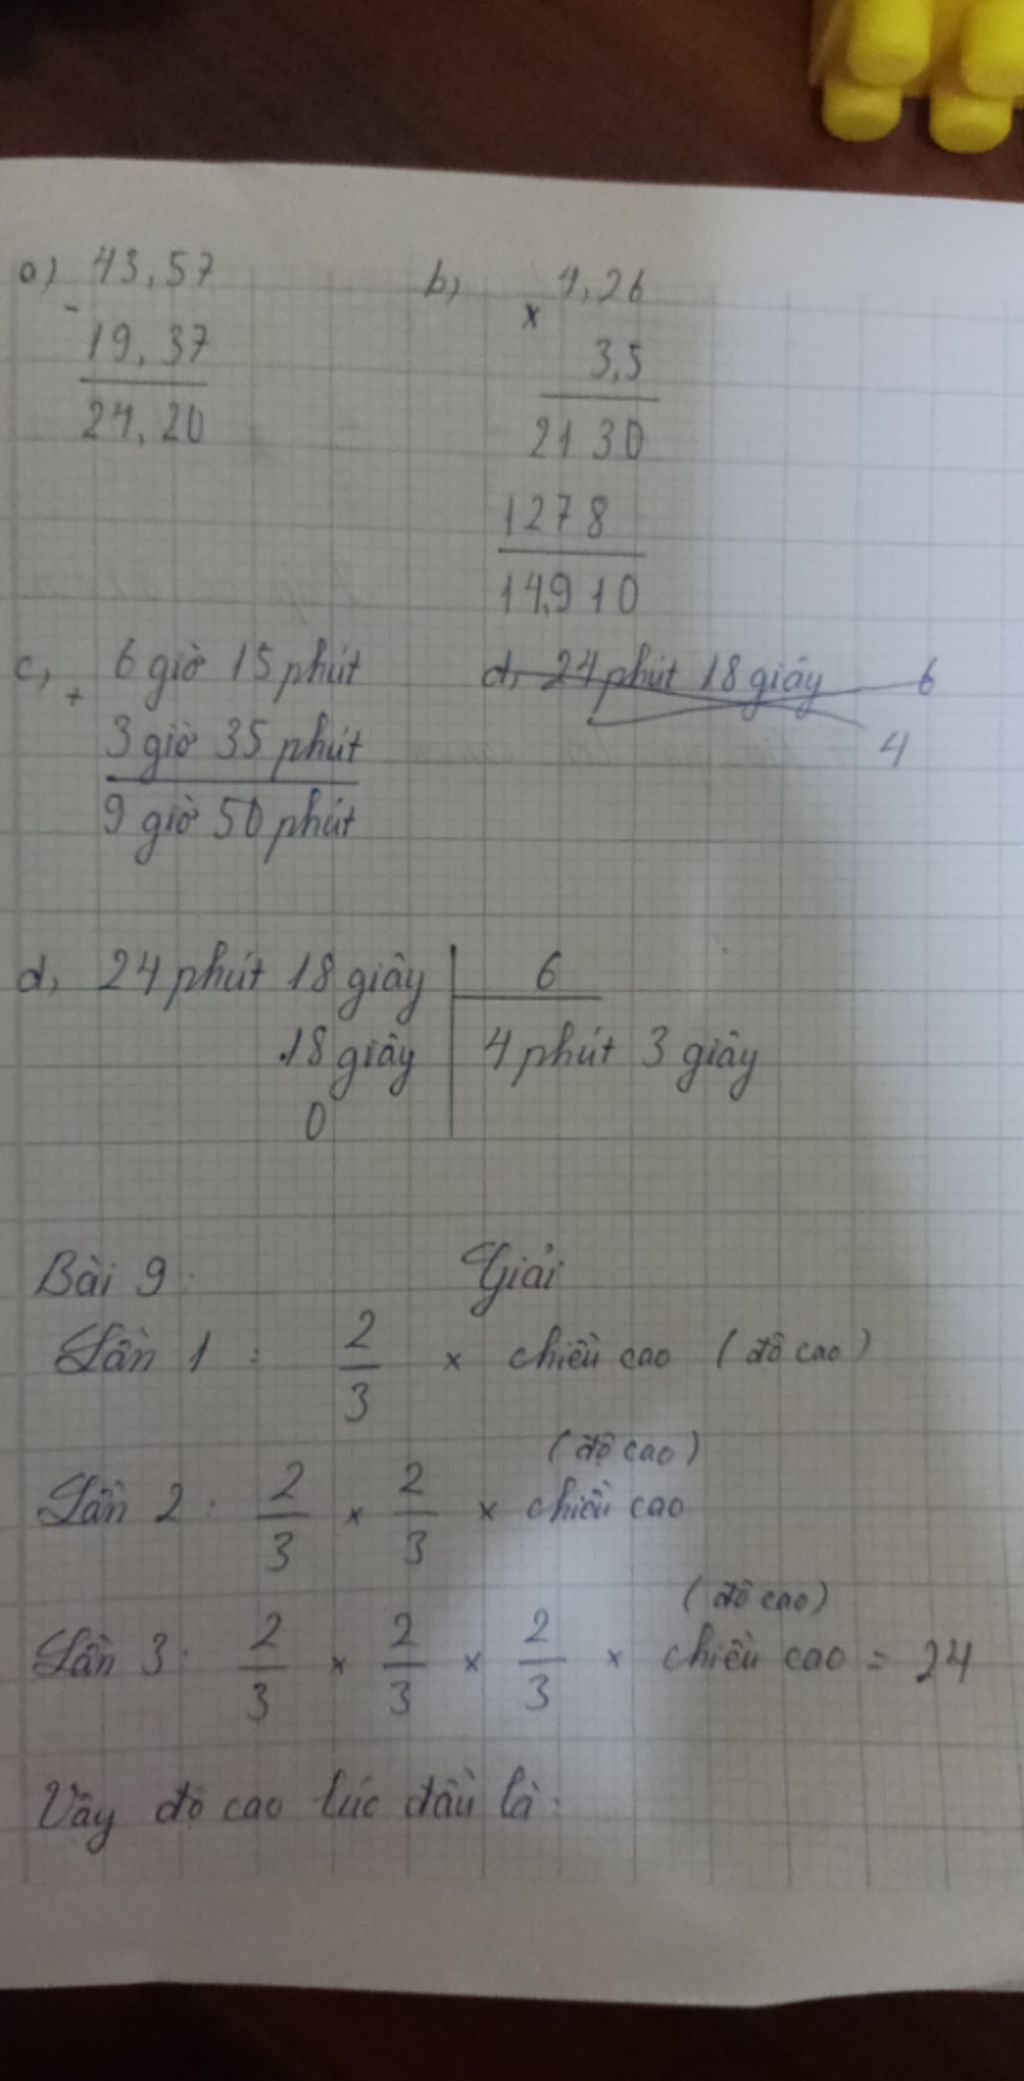 a) 43,57
-
19,37
24,20
b, 4,26
x
3,5
2130
1278
14,910
c, 6 giờ 15 phút
+
3 giờ 35 phút
9 giờ 50 phút
d, 24 phút 18 giây 6
4
d, 24 phút 18 giây 6
18 giây 4 phút 3 giây
0
Bài 9: Giải
Lần 1 : 2/3 x chiều cao (độ cao)
(độ cao)
Lần 2 : 2/3 x 2/3 x chiều cao
(độ cao)
Lần 3 : 2/3 x 2/3 x 2/3 x chiều cao = 24
Vậy độ cao lúc đầu là: